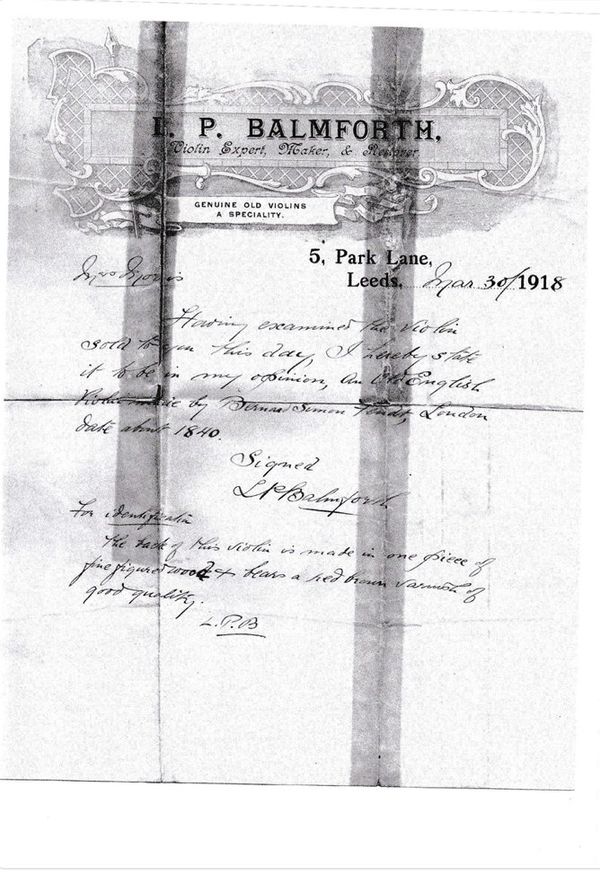 L. P. BALMFORTH,
Violin Expert, Maker, & Repairer.
GENUINE OLD VIOLINS
A SPECIALITY.
5, Park Lane,
Leeds, Mar 30/1918
Mrs Morris
Having examined the Violin
sold to you this day, I hereby state
it to be in my opinion, an Old English
Violin made by Bernard Simon Fendt, London
date about 1840.
Signed
L P Balmforth
For identification
The back of this violin is made in one piece of
fine figured wood & bears a red brown varnish of
good quality.
L.P.B